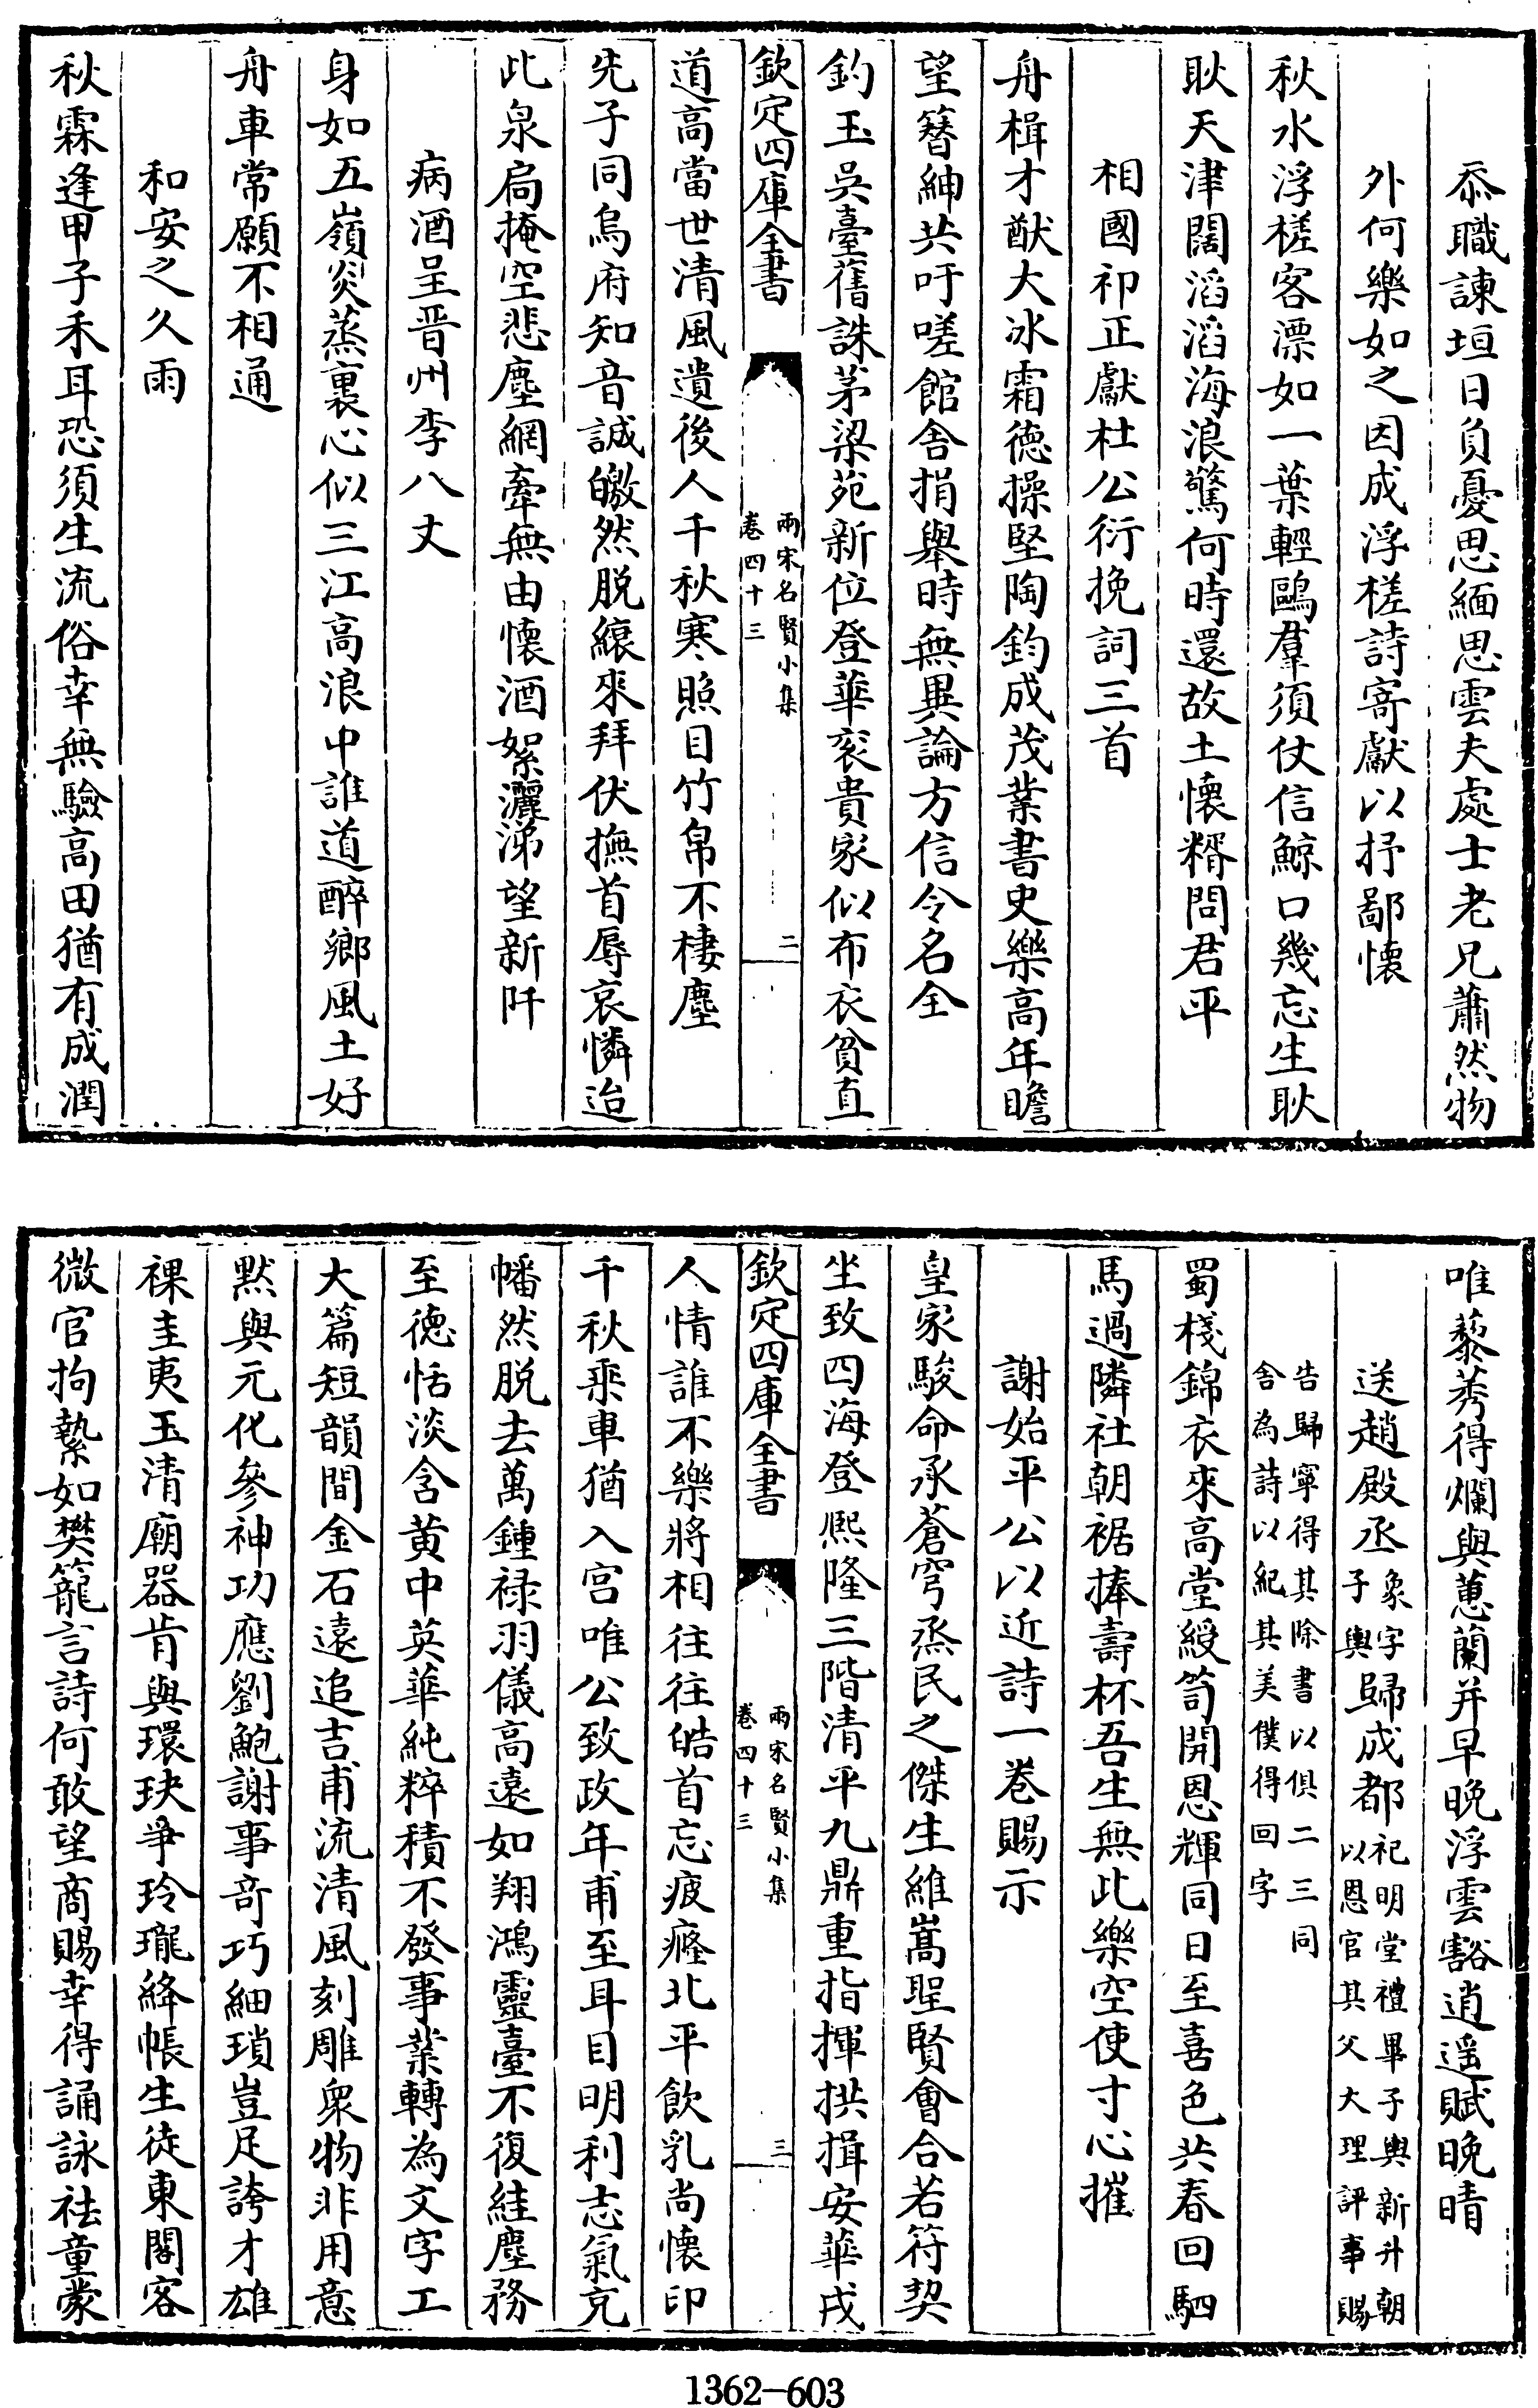 忝職諫垣日負憂思緬思雲夫處士老兄蕭然物
外何樂如之因成浮槎詩寄獻以抒鄙懷
秋水浮槎客漂如一葉輕鷗羣須仗信鯨口幾忘生耿
耿天津闊滔滔海浪驚何時還故土懷糈問君平
相國祁正獻杜公衍挽詞三首
舟楫才猷大冰霜德操堅陶鈞成茂業書史樂高年瞻
望簪紳共吁嗟館舍捐舉時無異論方信令名全
釣玉吳臺舊誅茅梁苑新位登華衮貴家似布衣貧直
欽定四庫全書
兩宋名賢小集
卷四十三
二
道高當世清風遺後人千秋寒照目竹帛不棲塵
先子同烏府知音誠皦然脱縗來拜伏撫首辱哀憐迨
此泉扃掩空悲塵網牽無由懷酒絮灑涕望新阡
病酒呈晋州李八丈
身如五嶺炎蒸裏心似三江高浪中誰道醉鄉風土好
舟車常願不相通
和安之久雨
秋霖逢甲子禾耳恐須生流俗幸無驗高田猶有成潤
唯藜莠得爛與蕙蘭并早晚浮雲豁逍遥賦晚晴
送趙殿丞象字子輿歸成都祀明堂禮畢子輿新升朝以恩官其父大理評事賜
告歸寧得其除書以俱二三同
舍為詩以紀其美僕得回字
蜀棧錦衣來高堂綬笥開恩輝同日至喜色共春回駟
馬過隣社朝裾捧壽杯吾生無此樂空使寸心摧
謝始平公以近詩一卷賜示
皇家駿命承蒼穹烝民之傑生維嵩聖賢會合若符契
坐致四海登熙隆三階清平九鼎重指揮拱揖安華戎
欽定四庫全書
兩宋名賢小集
卷四十三
三
人情誰不樂將相往往皓首忘疲癃北平飲乳尚懷印
千秋乘車猶入宫唯公致政年甫至耳目明利志氣充
幡然脱去萬鍾祿羽儀高遠如翔鴻靈臺不復絓塵務
至德恬淡含黄中英華純粹積不發事業轉為文字工
大篇短韻間金石遠追吉甫流清風刻雕衆物非用意
默與元化參神功應劉鮑謝事奇巧細瑣豈足誇才雄
祼圭夷玉清廟器肯與環玦爭玲瓏絳帳生徒東閣客
微官拘縶如樊籠言詩何敢望商賜幸得誦詠祛童蒙
1362-603